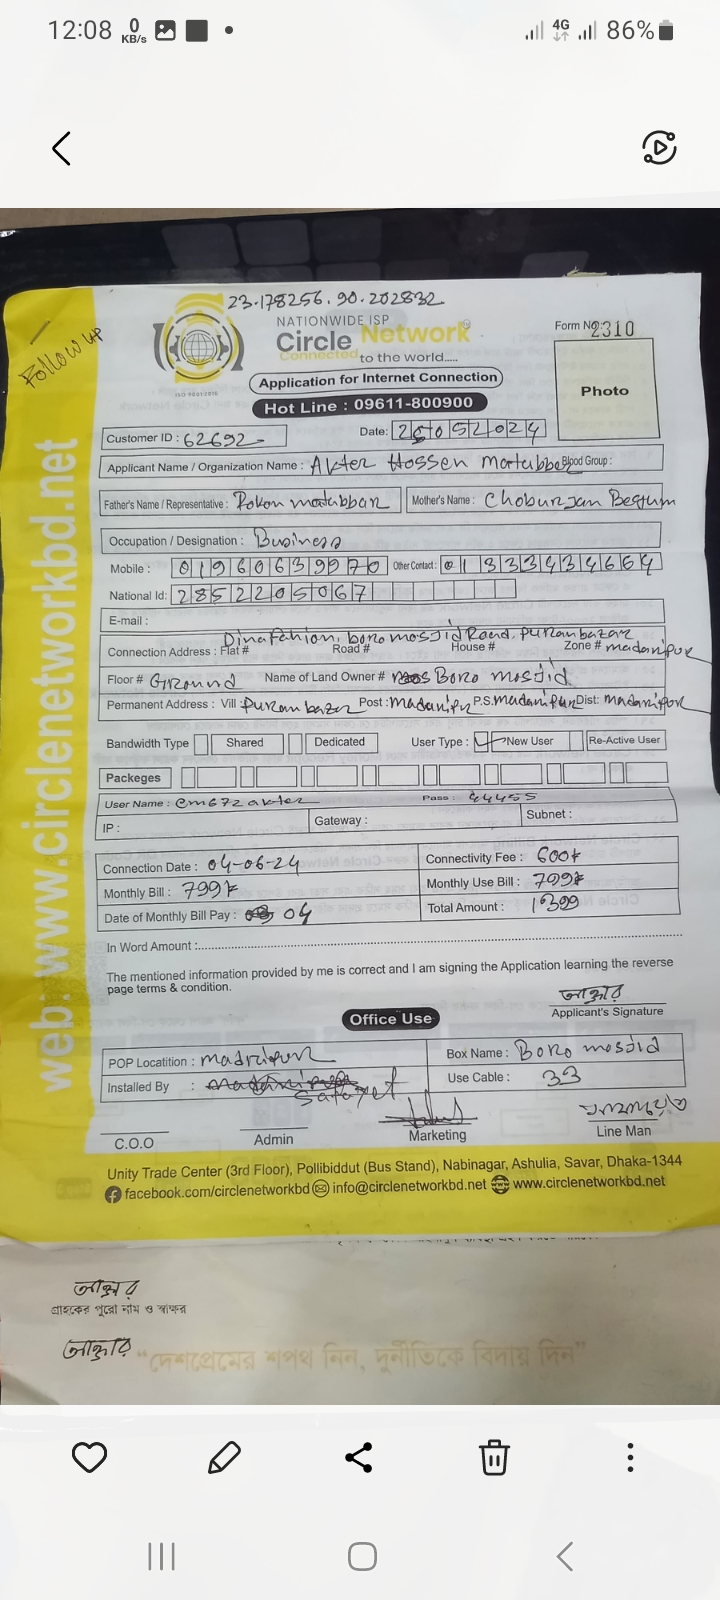 12:08 0 KB/s 4G 86%
23.178256, 90.202832
Follow up
NATIONWIDE ISP
Circle Network
Connected to the world.....
ISO 9001:2015
Form No 2310
Application for Internet Connection
Photo
Hot Line : 09611-800900
Customer ID : 62692
Date: 25052024
Applicant Name / Organization Name : Akter Hossen Matubber Blood Group :
Father's Name / Representative : Rokon matubbar Mother's Name : Choburjan Begum
Occupation / Designation : Business
Mobile : 01960639970 Other Contact : 01333434664
National Id: 2852205067
E-mail :
Dina Fahion, boro mosjid Road, Puran bazar
Connection Address : Flat # Road # House # Zone # madanipur
Floor # Ground Name of Land Owner # Boro mosjid
Permanent Address : Vill Puran bazar Post : madanipur P.S. madanipur Dist: madanipur
Bandwidth Type Shared Dedicated User Type : New User Re-Active User
Packeges
User Name : cm672akter Pass : 44455
IP : Gateway : Subnet :
Connection Date : 04-06-24 Connectivity Fee : 600৳
Monthly Bill : 799৳ Monthly Use Bill : 799৳
Date of Monthly Bill Pay : 04 Total Amount : 1399
In Word Amount :
The mentioned information provided by me is correct and I am signing the Application learning the reverse
page terms & condition.
আক্তার
Applicant's Signature
Office Use
POP Locatition : madripur Box Name : Boro mosjid
Installed By : Use Cable : 33
C.O.O Admin Marketing Line Man
Unity Trade Center (3rd Floor), Pollibiddut (Bus Stand), Nabinagar, Ashulia, Savar, Dhaka-1344
facebook.com/circlenetworkbd info@circlenetworkbd.net www.circlenetworkbd.net
web: www.circlenetworkbd.net
আক্তার
গ্রাহকের পুরো নাম ও স্বাক্ষর
আক্তার
“দেশপ্রেমের শপথ নিন, দুর্নীতিকে বিদায় দিন”